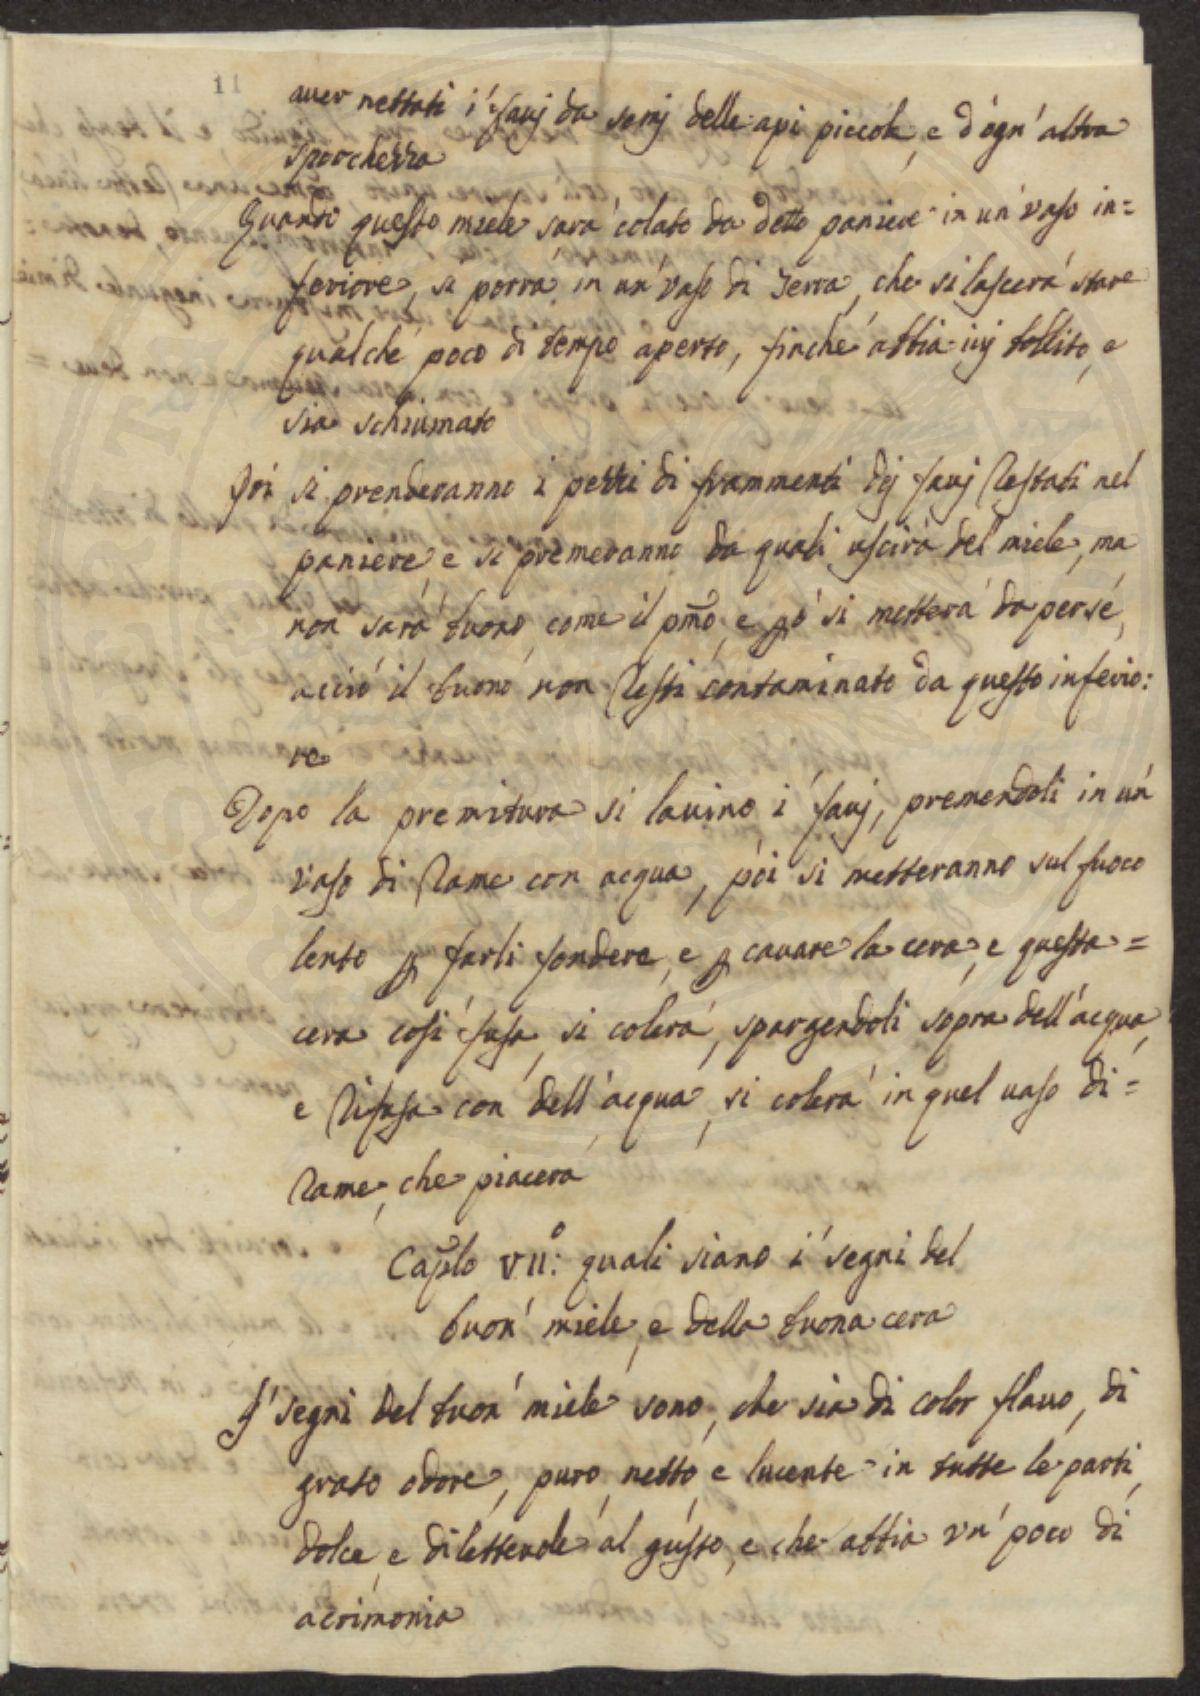 11
aver nettati i' favj da
delle api piccole, e d'ogn'altra
sporchezza
Quando questo miele sarà colato da detto paniere in un' vaso in=
feriore, si porrà in un' vaso di Terra, che si lascerà stare
qualche poco di tempo aperto, finche abbia ivj bollito, e
sia schiumato
Poi si prenderanno i pezzi di frammenti dej favj restati nel
paniere, e si premeranno da quali uscirà del miele, ma
non sarà buono, come il pmo, e però si metterà da persé,
acciò il buono non resti contaminato da questo inferio:
re
Dopo la premitura si lavino i' favj, premendoli in un'
vaso di rame con acqua, poi si metteranno sul fuoco
lento p farli fondere, e p cavare la cera, e questa =
cera così fusa, si colerà, spargendoli sopra dell'acqua,
e rifusa con dell'acqua, si colerà in quel vaso di =
rame, che piacerà
Caplo VII:o quali siano i' segni del
buon' miele, e della buona cera
I' segni del buon' miele sono, che sia di color flavo, di
grato odore, puro, netto e lucente in tutte le parti,
dolce, e dilettevole al gusto, e che abbia un' poco di
acrimonia